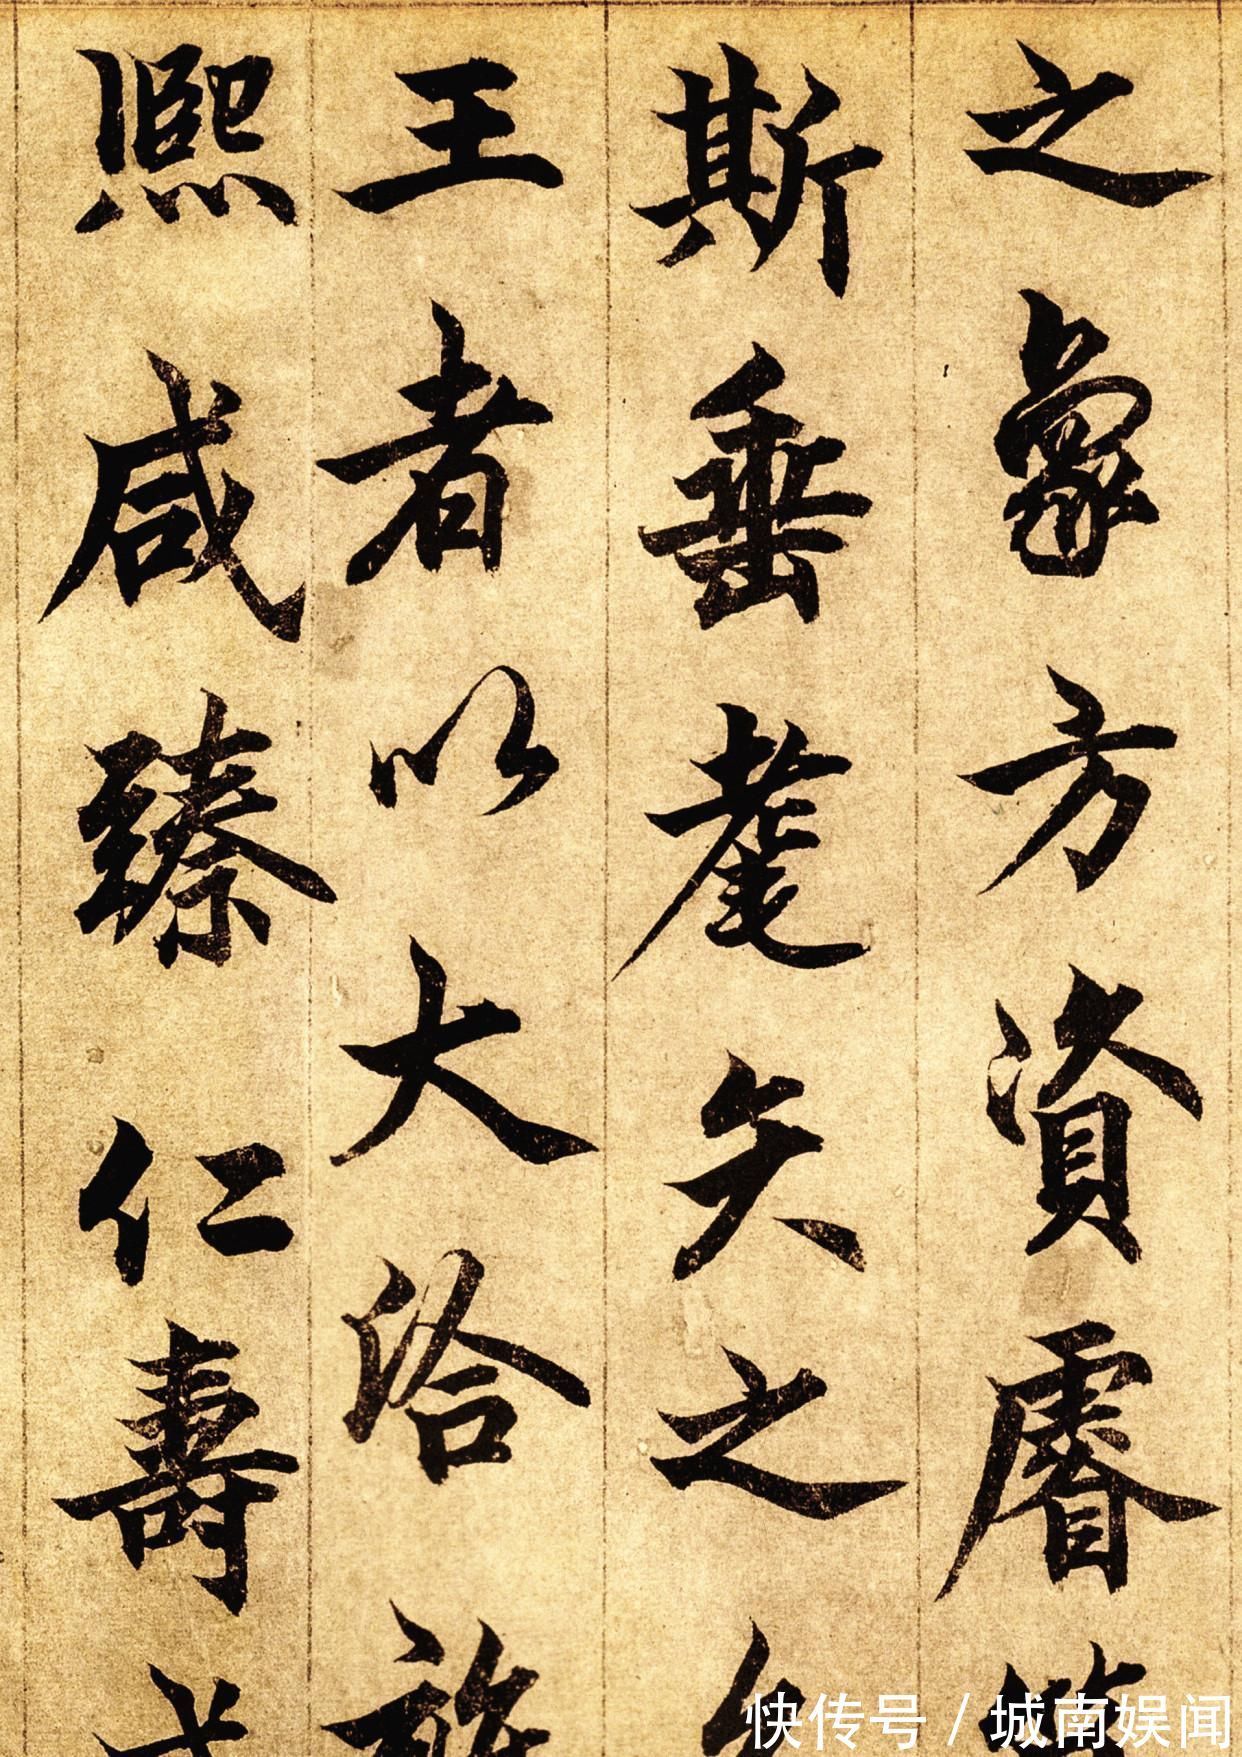 之象方資睿
斯垂耄矢之
王者以大洽
熙咸臻仁壽
快传号 / 城南娱闻